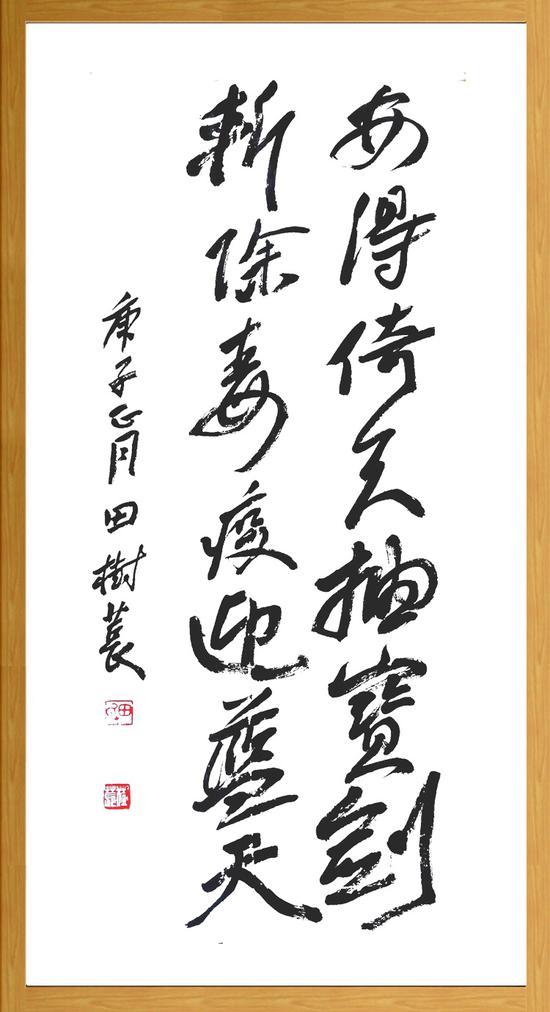 安得倚天抽寶劍
斬除毒疫迎藍天
庚子正月田樹萇